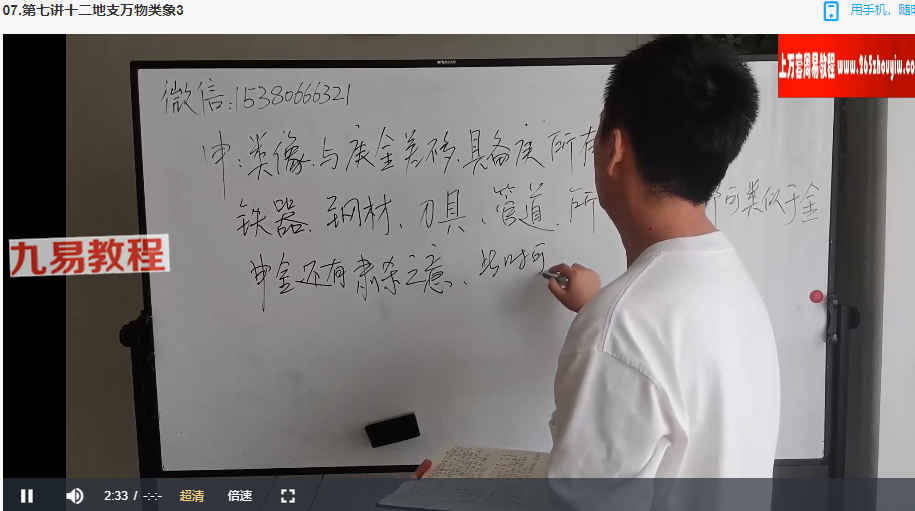 07.第七讲十二地支万物类象3
用手机，随
上万套周易教程 www.365zhouyiu.com
微信:15380666321
申:类像.与庚金差移.具备庚 所有
铁器.钢材、刀具、管道.所 可类似于金
九易教程
申金还有肃杀之意、
2:33 / -:-:- 超清 倍速